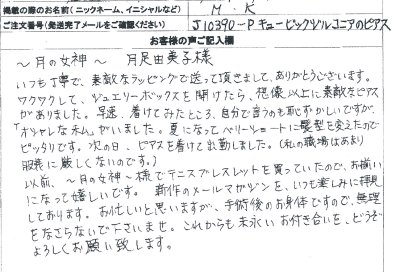 掲載の際のお名前(ニックネーム、イニシャルなど) M・K
ご注文番号(発送完了メールをご確認ください) J10390-P キュービックジルコニアのピアス
お客様の声ご記入欄
〜月の女神〜 月足由美子様
いつも丁寧で、素敵なラッピングで送って頂きまして、ありがとうございます。
ワクワクして、ジュエリーボックスを開けたら、想像以上に素敵なピアス
がありました。早速、着けてみたところ、自分で言うのも恥ずかしいですが、
「オシャレな私」がいました。夏になってベリーショートに髪型を変えたので
ピッタリです。次の日、ピアスを着けて出勤しました。(私の職場はあまり
服装に厳しくないのです。)
以前、〜月の女神〜様でテニスブレスレットを買っていたので、お揃い
になって嬉しいです。新作のメールマガジンを、いつも楽しみに拝見
しております。お忙しいと思いますが、手術後のお身体ですので、無理
をなさらないで下さいませ。これからも末永いお付き合いを、どうぞ
よろしくお願い致します。